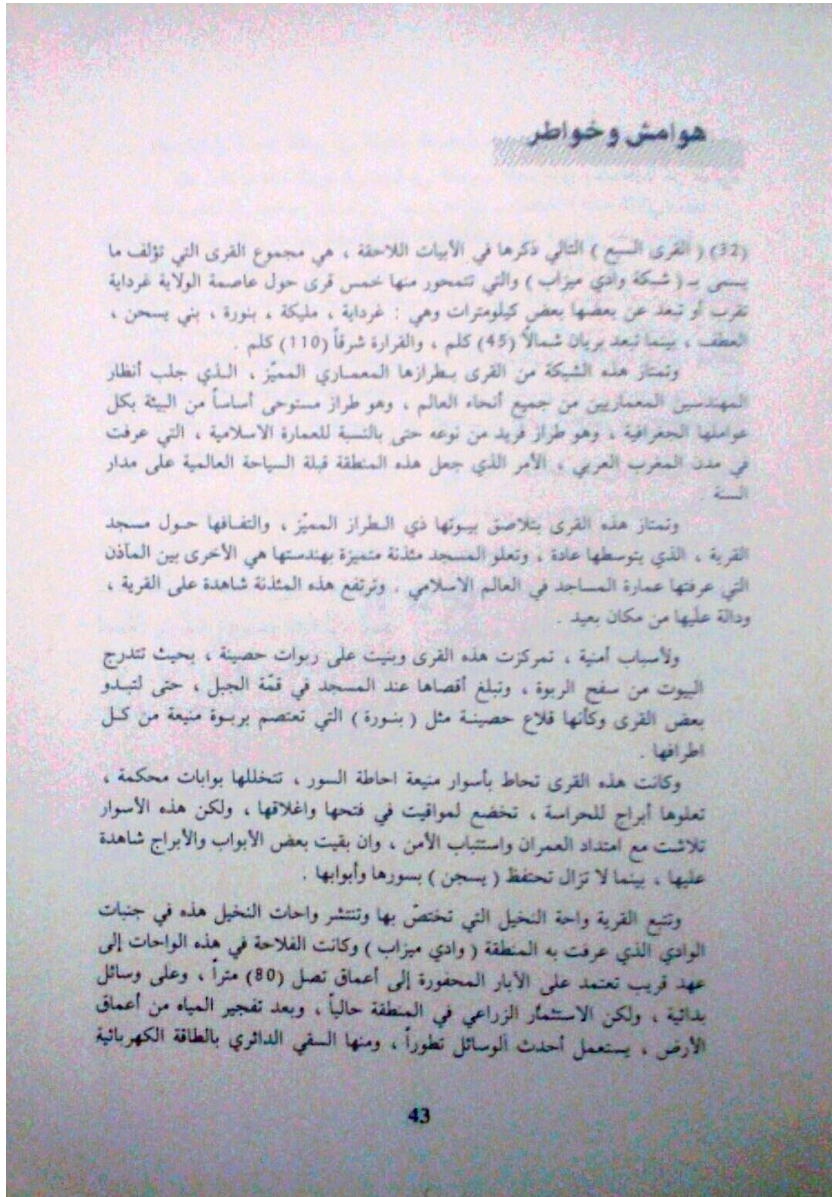 هوامش وخواطر
(32) ( القرى السبع ) التالي ذكرها في الأبيات اللاحقة ، هي مجموع القرى التي تؤلف ما
يسمى بـ ( شبكة وادي ميزاب ) والتي تتمحور منها خمس قرى حول عاصمة الولاية غرداية
تقرب أو تبعد عن بعضها بعض كيلومترات وهي : غرداية ، مليكة ، بنورة ، بني يسجن ،
العطف ، بينما تبعد بريان شمالاً (45) كلم ، والقرارة شرقاً (110) كلم .
وتمتاز هذه الشبكة من القرى بطرازها المعماري المميّز ، الذي جلب أنظار
المهندسين المعماريين من جميع أنحاء العالم ، وهو طراز مستوحى أساساً من البيئة بكل
عواملها الجغرافية ، وهو طراز فريد من نوعه حتى بالنسبة للعمارة الاسلامية ، التي عرفت
في مدن المغرب العربي ، الأمر الذي جعل هذه المنطقة قبلة السياحة العالمية على مدار
السنة .
وتمتاز هذه القرى بتلاصق بيوتها ذي الطراز المميّز ، والتفافها حول مسجد
القرية ، الذي يتوسطها عادة ، وتعلو المسجد مئذنة متميزة بهندستها هي الأخرى بين المآذن
التي عرفتها عمارة المساجد في العالم الاسلامي . وترتفع هذه المئذنة شاهدة على القرية ،
ودالة عليها من مكان بعيد .
ولأسباب أمنية ، تمركزت هذه القرى وبنيت على ربوات حصينة ، بحيث تتدرج
البيوت من سفح الربوة ، وتبلغ أقصاها عند المسجد في قمّة الجبل ، حتى لتبدو
بعض القرى وكأنها قلاع حصينة مثل ( بنورة ) التي تعتصم بربوة منيعة من كل
اطرافها .
وكانت هذه القرى تحاط بأسوار منيعة احاطة السور ، تتخللها بوابات محكمة ،
تعلوها أبراج للحراسة ، تخضع لمواقيت في فتحها واغلاقها ، ولكن هذه الأسوار
تلاشت مع امتداد العمران واستتباب الأمن ، وان بقيت بعض الأبواب والأبراج شاهدة
عليها ، بينما لا تزال تحتفظ ( يسجن ) بسورها وأبوابها .
وتتبع القرية واحة النخيل التي تختصّ بها وتنتشر واحات النخيل هذه في جنبات
الوادي الذي عرفت به المنطقة ( وادي ميزاب ) وكانت الفلاحة في هذه الواحات إلى
عهد قريب تعتمد على الآبار المحفورة إلى أعماق تصل (80) متراً ، وعلى وسائل
بدائية ، ولكن الاستثمار الزراعي في المنطقة حالياً ، وبعد تفجير المياه من أعماق
الأرض ، يستعمل أحدث الوسائل تطوراً ، ومنها السقي الدائري بالطاقة الكهربائية
43